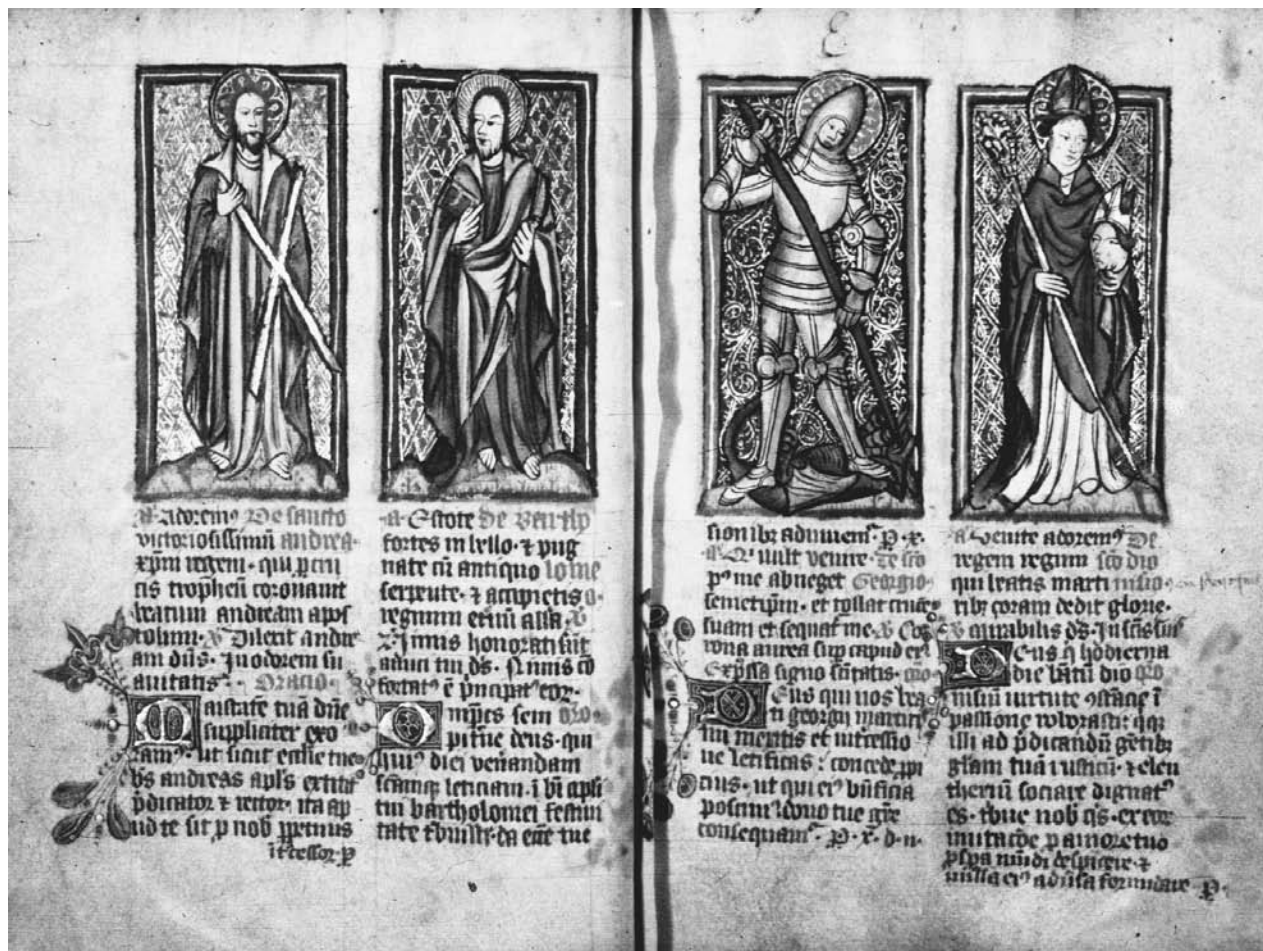 a. Adorem⁹ De sancto
victoriosissimū andrea.
xp̄m regem. qui p cru
cis tropheū coronauit
beatum andream apos
tolum. ꝟ Dilexit andre
am dn̄s. In odorem su
auitatis. Oracio.
Maiestatē tuā dn̄e
suppliciter exo
ram⁹. ut sicut ecclie tue
bs andreas apls extitit
p̄dicator & rector. ita ap
ud te sit p nob ppetuus
īt̄cessor. p
a. Estote De
fortes in bello. & pug
nate cū antiquo lo me
serpente. & accipietis o.
regnum etnū alla. ꝟ
Nimis honorati sūt
amici tui ds. Nimis cō
fortat⁹ ē p̄ncipat⁹ eor.
Omp̄es sem oro.
pit̄ne deus. qui
hui⁹ diei ven̄andam
scāmq leticiam. ī bī apli
tui bartholomei festiui
tate t̄buisti. da ecc̄e tue
E
sionibz adiuuem̄. P. x.
a. Qi vult venire. De sc̄o
p⁹ me abneget Georgio.
semetip̄m. et tollat crucē
suam et sequat me. ꝟ Co
rona aurea sup capud ei⁹
Exp̄ssa signo sc̄itatis. oro
Deus qui nos bea
ti georgii martiris
tui meritis et int̄cessio
ne letificas: concede ppi
cius. ut qui ei⁹ bn̄ficia
poscim⁹ dono tue grē
consequam̄. P. x. d. n.
a. Venite adorem⁹ De
regem regum sc̄o dio
qui beatis marti nisio
ribz coram dedit glorie.
ꝟ Mirabilis ds. In sc̄is suis
Deus q hodierna
die bātū dio oro
nisiū uirtute ꝯstācie ī
passione roborasti. qiqz
illi ad p̄dicandū gētibz
gl̄am tuā rusticū. & eleu
theriū sociare dignat⁹
es. t̄bue nob qs. ex eor
imitacōe p amore tuo
pspa mūdi despicere. &
nulla ei⁹ adūsa formidare. P.